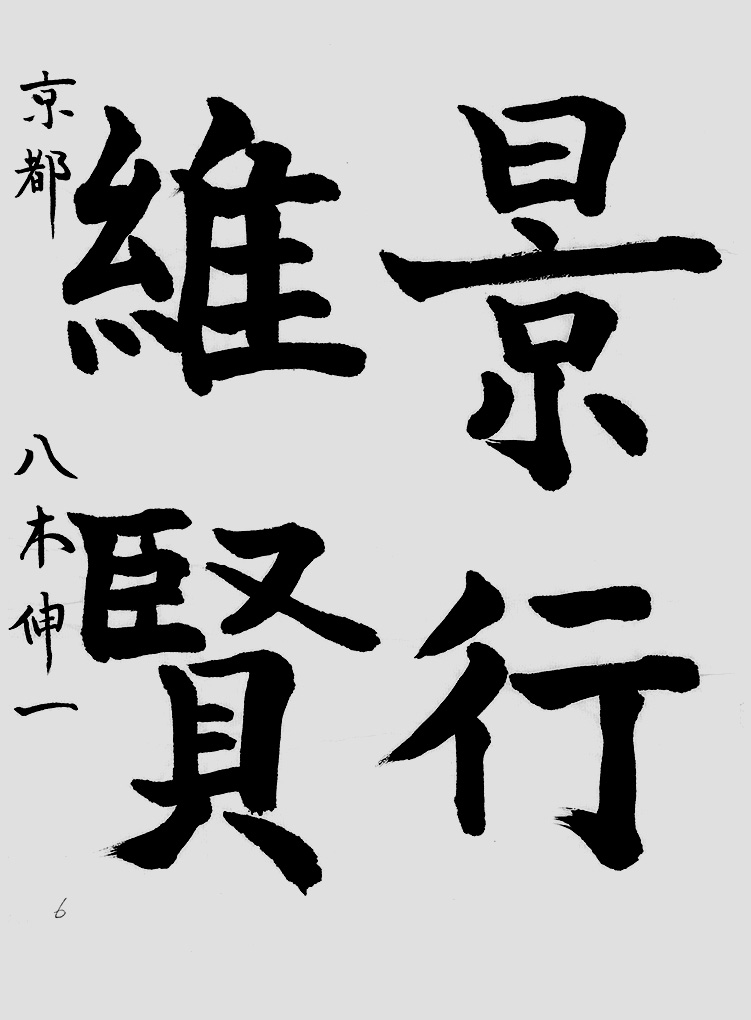 景行
維賢
京都 八木伸一
6